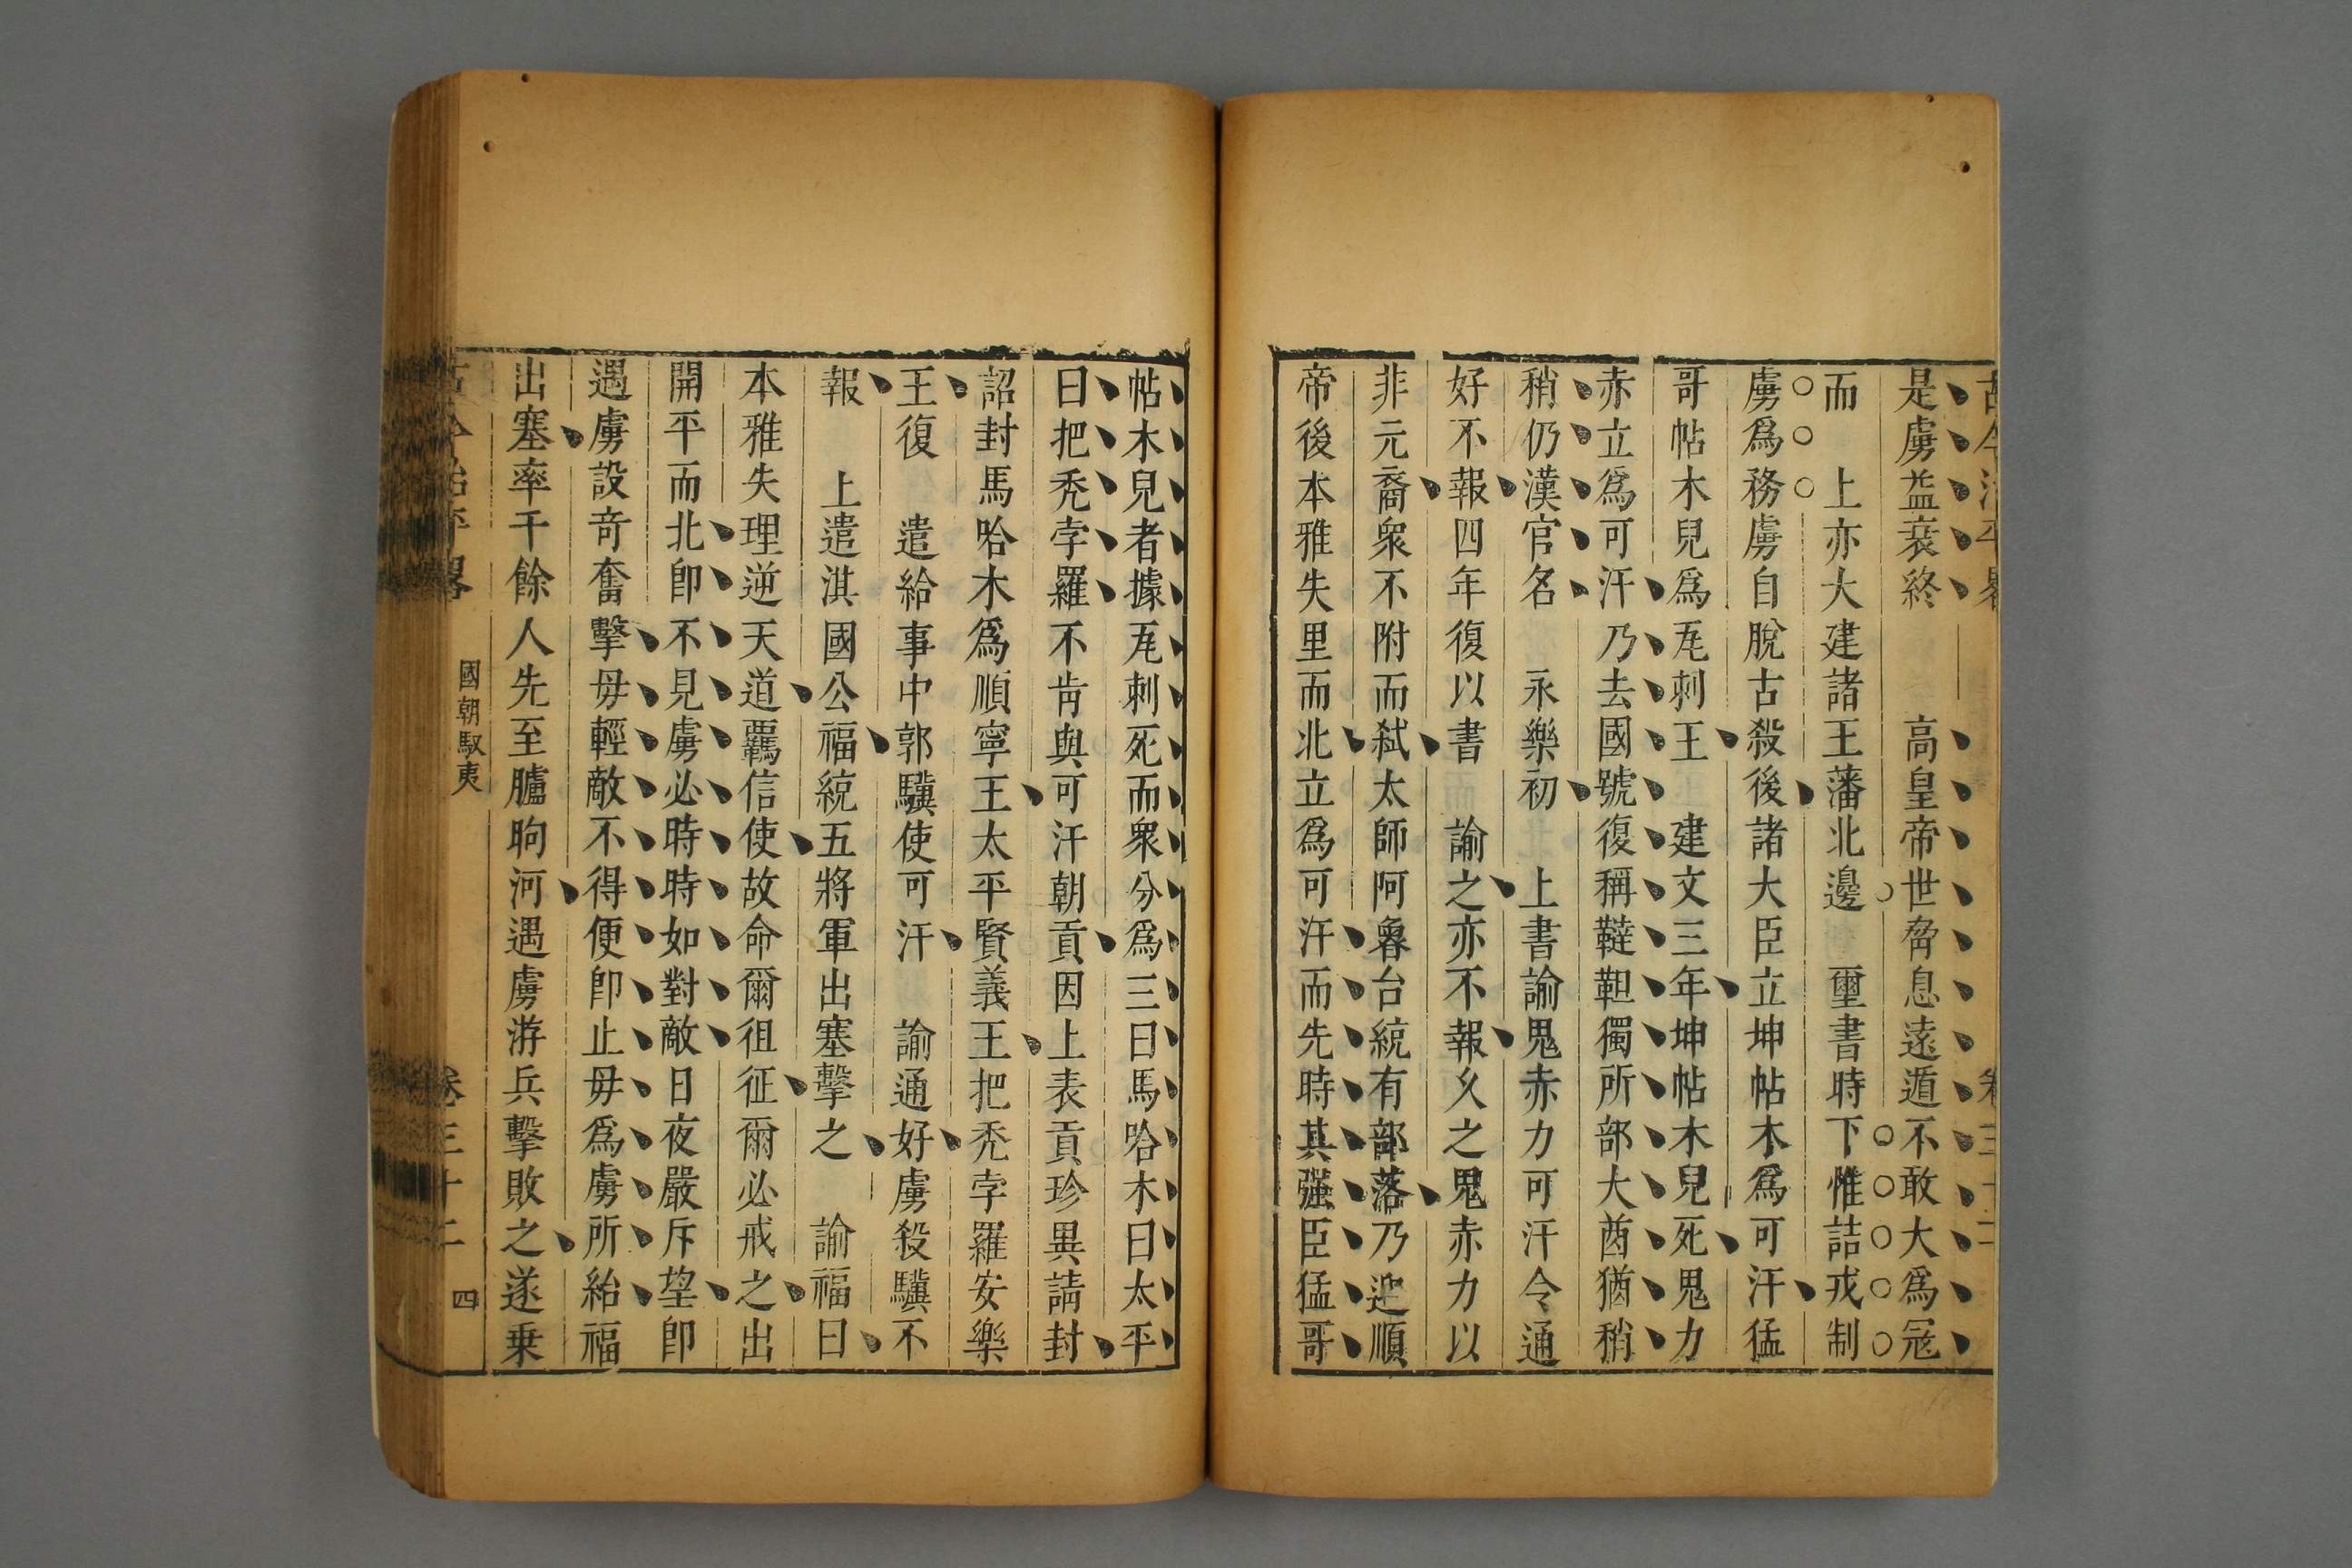 古今治平畧 卷三十二
是虜益衰終 高皇帝世脅息遠遁不敢大爲冦
而 上亦大建諸王藩北邊 璽書時下惟詰戎制
虜爲務虜自脫古殺後諸大臣立坤帖木爲可汗猛
哥帖木兒爲瓦剌王 建文三年坤帖木兒死鬼力
赤立爲可汗乃去國號復稱韃靼獨所部大酋猶稍
稍仍漢官名 永樂初 上書諭鬼赤力可汗令通
好不報四年復以書 諭之亦不報乆之鬼赤力以
非元裔衆不附而弑太師阿魯台統有部落乃迎順
帝後本雅失里而北立爲可汗而先時其强臣猛哥
帖木兒者據瓦剌死而衆分爲三曰馬哈木曰太平
曰把禿孛羅不肯與可汗朝貢因上表貢珍異請封
詔封馬哈木爲順寧王太平賢義王把禿孛羅安樂
王復 遣給事中郭驥使可汗 諭通好虜殺驥不
報 上遣淇國公福統五將軍出塞擊之 諭福曰
本雅失理逆天道羈信使故命爾徂征爾必戒之出
開平而北卽不見虜必時時如對敵日夜嚴斥堠卽
遇虜設奇奮擊毋輕敵不得便卽止毋爲虜所紿福
出塞率千餘人先至臚朐河遇虜游兵擊敗之遂乗
古今治平畧 國朝馭夷 卷三十二 四